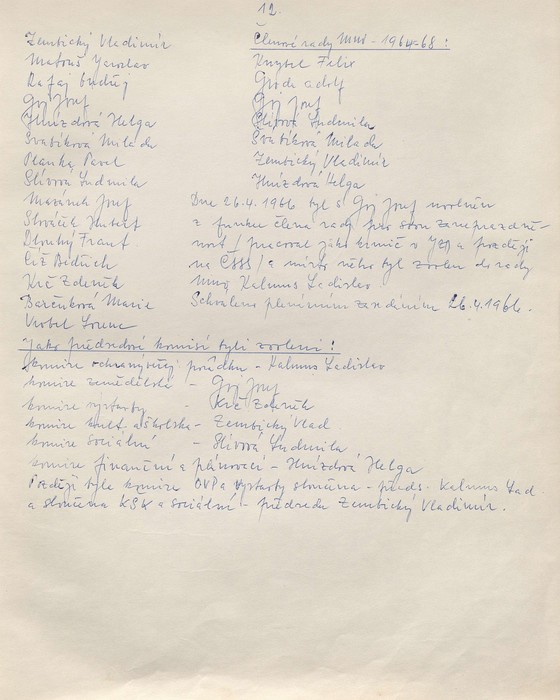 12.
Zembický Vladimír
Matouš Jaroslav
Rafaj Ondřej
Gój Josef
Hnízdová Helga
Svatíková Milada
Planka Pavel
Slívová Ludmila
Mazánek Josef
Slováček Hubert
Dlouhý Frant.
Číž Bedřich
Krč Zdeněk
Barčuková Marie
Vrobel Lorenc
Členové rady MNV - 1964-68:
Knybel Felix
Grida Adolf
Gój Josef
Slívová Ludmila
Svatíková Milada
Zembický Vladimír
Hnízdová Helga
Dne 26.4.1966 byl s. Gój Josef uvolněn
z funkce člena rady pro stou zaneprázdně-
nost / pracoval jako řidič v JZD a později
na ČSSS / a místo něho byl zvolen do rady
Kalmus Ladislav.
Schváleno plenárním zasedáním 26.4.1966.
Jako předsedové komisí byli zvoleni:
komise ochrany veřej. pořádku - Kalmus Ladislav
komise zemědělská - Gój Josef
komise výstavby - Krč Zdeněk
komise kult. a školská - Zembický Vlad
komise sociální - Slívová Ludmila
komise finanční a plánovací - Hnízdová Helga
Později byla komise OVP a výstavby sloučena - předs. Kalmus Lad.
a sloučena KŠK a sociální - předseda Zembický Vladimír.